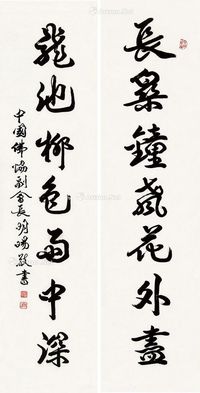 長樂鐘聲花外盡
龍池柳色雨中深
中國佛協副會長明暘敬書